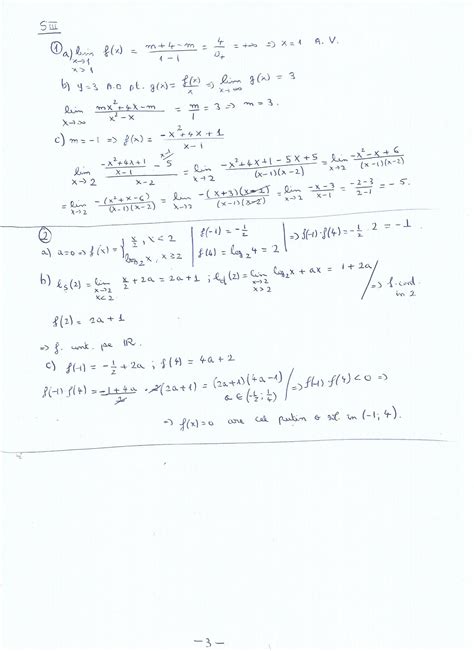 S III
① a) lim_{x→1, x>1} f(x) = (m+4-m)/(1-1) = 4/0₊ = +∞ ⇒ x=1 A.V.
b) y=3 A.O pt. g(x) = f(x)/x ⇒ lim_{x→∞} g(x) = 3
lim_{x→∞} (mx²+4x-m)/(x²-x) = m/1 = 3 ⇒ m=3.
c) m=-1 ⇒ f(x) = (-x²+4x+1)/(x-1)
lim_{x→2} ((-x²+4x+1)/(x-1) - 5)/(x-2) = lim_{x→2} (-x²+4x+1-5x+5)/((x-1)(x-2)) = lim_{x→2} (-x²-x+6)/((x-1)(x-2))
= lim_{x→2} -(x²+x-6)/((x-1)(x-2)) = lim_{x→2} -(x+3)(x-2)/((x-1)(x-2)) = lim_{x→2} (-x-3)/(x-1) = (-2-3)/(2-1) = -5.
②
a) a=0 ⇒ f(x) = { x/2, x<2 ; log₂x, x≥2 | f(-1) = -1/2 ; f(4) = log₂4 = 2 | ⇒ f(-1)·f(4) = -1/2 · 2 = -1
b) ls(2) = lim_{x→2, x<2} x/2 + 2a = 2a+1 ; ld(2) = lim_{x→2, x>2} log₂x + ax = 1+2a / ⇒ f. cont. in 2
f(2) = 2a+1
⇒ f. cont. pe ℝ.
c) f(-1) = -1/2 + 2a ; f(4) = 4a+2
f(-1) f(4) = (-1+4a)/2 · 2(2a+1) = (2a+1)(4a-1) / a∈(-1/2; 1/4) / ⇒ f(-1) f(4) < 0 ⇒
⇒ f(x)=0 are cel putin o sol. in (-1; 4).
-3-